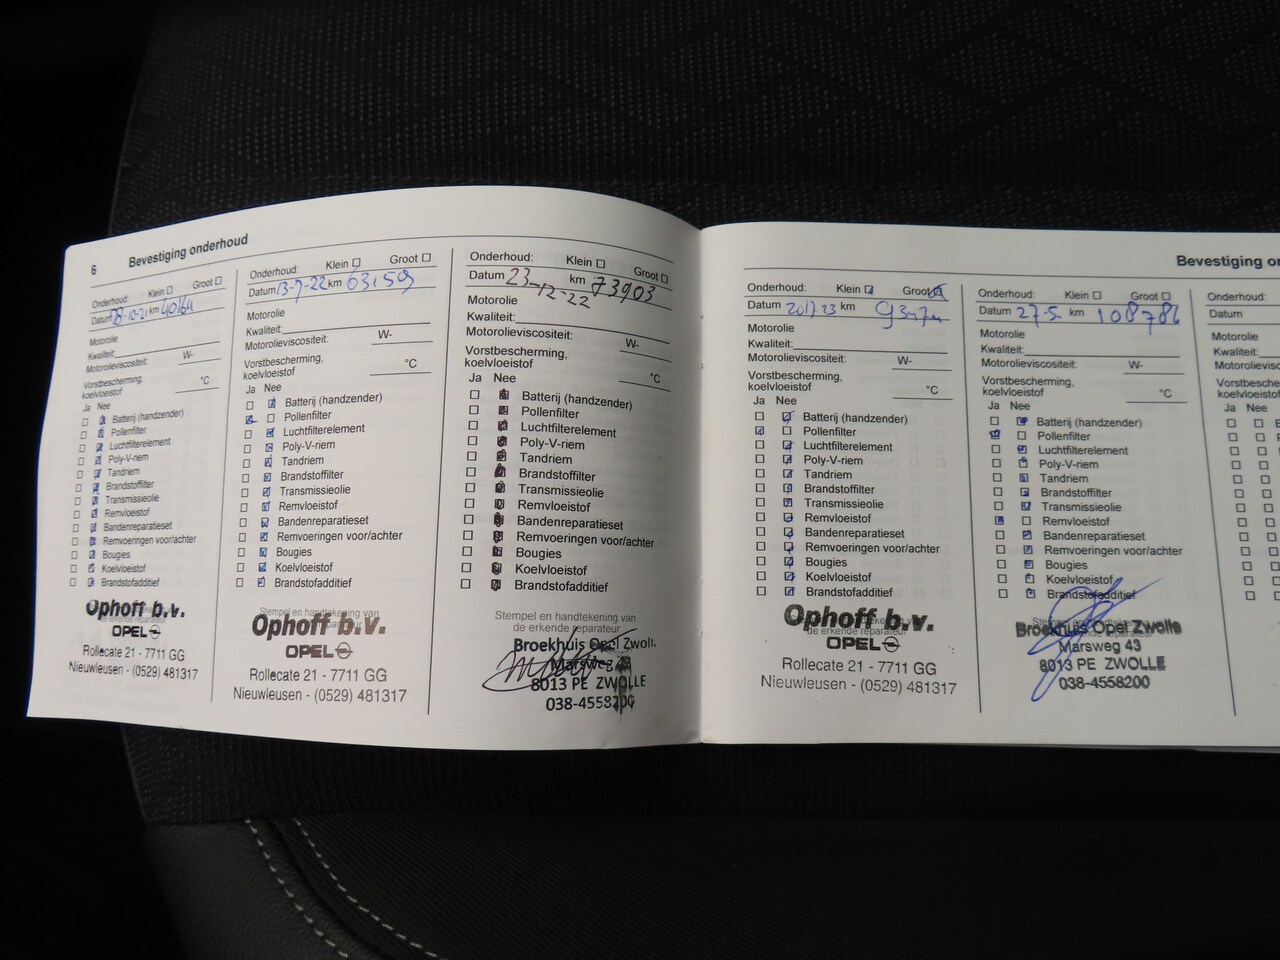 6 Bevestiging onderhoud
Onderhoud: Klein Groot
Datum 28-10-21 km 40164
Motorolie
Kwaliteit:
Motorolieviscositeit: W-
Vorstbescherming,
koelvloeistof °C
Ja Nee
Batterij (handzender)
Pollenfilter
Luchtfilterelement
Poly-V-riem
Tandriem
Brandstoffilter
Transmissieolie
Remvloeistof
Bandenreparatieset
Remvoeringen voor/achter
Bougies
Koelvloeistof
Brandstofadditief
Ophoff b.v.
OPEL
Rollecate 21 - 7711 GG
Nieuwleusen - (0529) 481317
Onderhoud: Klein Groot
Datum 13-7-22 km 63159
Motorolie
Kwaliteit:
Motorolieviscositeit: W-
Vorstbescherming,
koelvloeistof °C
Ja Nee
Batterij (handzender)
Pollenfilter
Luchtfilterelement
Poly-V-riem
Tandriem
Brandstoffilter
Transmissieolie
Remvloeistof
Bandenreparatieset
Remvoeringen voor/achter
Bougies
Koelvloeistof
Brandstofadditief
Stempel en handtekening van
de erkende reparateur
Ophoff b.v.
OPEL
Rollecate 21 - 7711 GG
Nieuwleusen - (0529) 481317
Onderhoud: Klein Groot
Datum 23-12-22 km 73903
Motorolie
Kwaliteit:
Motorolieviscositeit: W-
Vorstbescherming,
koelvloeistof °C
Ja Nee
Batterij (handzender)
Pollenfilter
Luchtfilterelement
Poly-V-riem
Tandriem
Brandstoffilter
Transmissieolie
Remvloeistof
Bandenreparatieset
Remvoeringen voor/achter
Bougies
Koelvloeistof
Brandstofadditief
Stempel en handtekening van
de erkende reparateur
Broekhuis Opel Zwoll
Marsweg 43
8013 PE ZWOLLE
038-4558200
Bevestiging on
Onderhoud: Klein Groot
Datum km
Motorolie
Kwaliteit:
Motorolieviscositeit: W-
Vorstbescherming,
koelvloeistof °C
Ja Nee
Batterij (handzender)
Pollenfilter
Luchtfilterelement
Poly-V-riem
Tandriem
Brandstoffilter
Transmissieolie
Remvloeistof
Bandenreparatieset
Remvoeringen voor/achter
Bougies
Koelvloeistof
Brandstofadditief
de erkende reparateur
Ophoff b.v.
OPEL
Rollecate 21 - 7711 GG
Nieuwleusen - (0529) 481317
Onderhoud: Klein Groot
Datum 27-5 km 108786
Motorolie
Kwaliteit:
Motorolieviscositeit: W-
Vorstbescherming,
koelvloeistof °C
Ja Nee
Batterij (handzender)
Pollenfilter
Luchtfilterelement
Poly-V-riem
Tandriem
Brandstoffilter
Transmissieolie
Remvloeistof
Bandenreparatieset
Remvoeringen voor/achter
Bougies
Koelvloeistof
Brandstofadditief
Broekhuis Opel Zwolle
Marsweg 43
8013 PE ZWOLLE
038-4558200
Onderhoud:
Datum
Motorolie
Kwaliteit:
Motorolieviscos
Vorstbescherm
koelvloeistof
Ja Nee